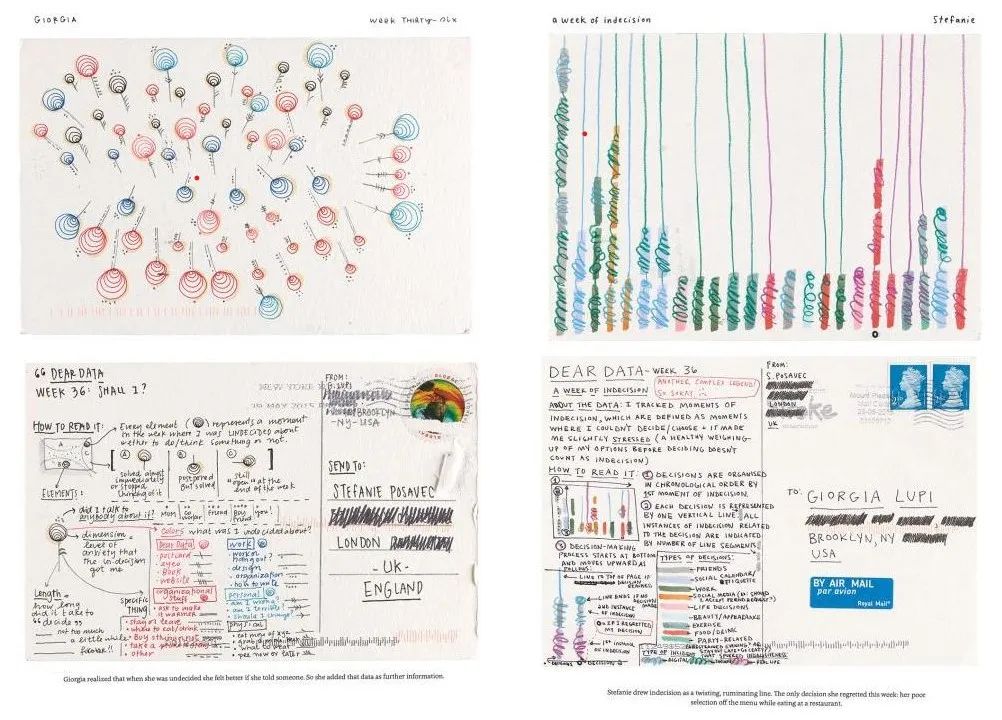 GIORGIA
WEEK THIRTY-SIX
a week of indecision
Stefanie
DEAR DATA
WEEK 36: SHALL I?
HOW TO READ IT:
Every element ( ) represents a moment
in the week where I was UNDECIDED about
wether to do/think something or not.
A
B
C
solved almost
immediately
or stopped
thinking of it
postponed
But solved
still
"open" at the
end of the week
ELEMENTS:
did I talk to
anybody about it?
Mom
friend
Boy
friend
you!
dimension =
level of
anxiety that
the indecision
got me
Length =
how long
did it take to
"decide"
not too much
a little while
forever!!
Colors what was I undecided about?
specific
THING
Dear Data
postcard
Book
website
organizational
stuff
stay or leave
where to eat/drink
Buy
other
work
design
organization
personal
am I wrong?
am I terrible?
should I change?
FROM:
G. LUPI
BROOKLYN
-NY-USA
SEND TO:
STEFANIE POSAVEC
LONDON
- UK -
ENGLAND
DEAR DATA - WEEK 36
A WEEK OF INDECISION
ANOTHER COMPLEX LEGEND!
SO SORRY
ABOUT THE DATA: I TRACKED MOMENTS OF
INDECISION, WHICH ARE DEFINED AS MOMENTS
WHERE I COULDN'T DECIDE/CHOOSE + IT MADE
ME SLIGHTLY STRESSED (A HEALTHY WEIGHING-
UP OF MY OPTIONS BEFORE DECIDING DOESN'T
COUNT AS INDECISION)
HOW TO READ IT:
1 DECISIONS ARE ORGANISED
IN CHRONOLOGICAL ORDER BY
1ST MOMENT OF INDECISION.
2 EACH DECISION IS REPRESENTED
BY ONE VERTICAL LINE. ALL
INSTANCES OF INDECISION RELATED
TO THE DECISION ARE INDICATED
BY NUMBER OF LINE SEGMENTS
3 DECISION-MAKING
PROCESS STARTS AT BOTTOM
AND MOVES UPWARD AS
FOLLOWS:
LINE TO TOP OF PAGE IF
DECISION
LINE ENDS IF NO
DECISION MADE
2ND INSTANCE
OF INDECISION
O = IF I REGRETTED
MY DECISION
1ST INSTANCE
OF INDECISION
TYPES OF DECISIONS:
FRIENDS
SOCIAL CALENDAR/
ETIQUETTE
WORK
SOCIAL MEDIA
LIFE DECISIONS
BEAUTY/APPEARANCE
EXERCISE
FOOD/DRINK
PARTY-RELATED
DIGITAL
REAL LIFE
FROM:
S. POSAVEC
LONDON
UK
TO: GIORGIA LUPI
BROOKLYN, NY
USA
BY AIR MAIL
par avion
Royal Mail
Giorgia realized that when she was undecided she felt better if she told someone. So she added that data as further information.
Stefanie drew indecision as a twisting, ruminating line. The only decision she regretted this week: her poor
selection off the menu while eating at a restaurant.